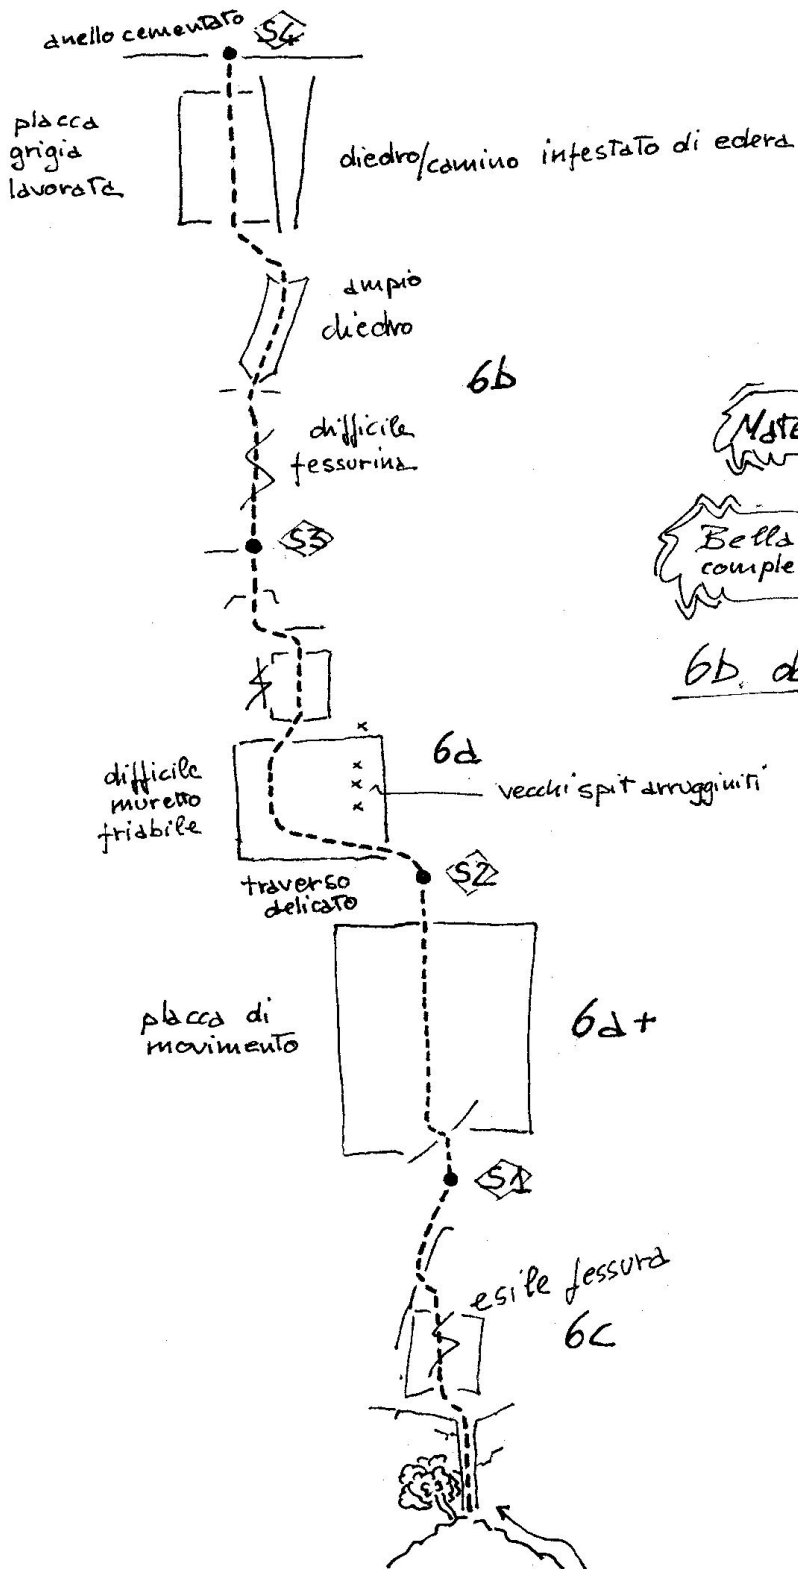 anello cementato S4
placca
grigia
lavorata
diedro/camino infestato di edera
ampio
diedro
6b
Mate
difficile
fessurina
Bella
comple
S3
6b. ob
6a
difficile
muretto
friabile
vecchi spit arrugginiti
S2
traverso
delicato
placca di
movimento
6a+
S1
esile fessura
6c